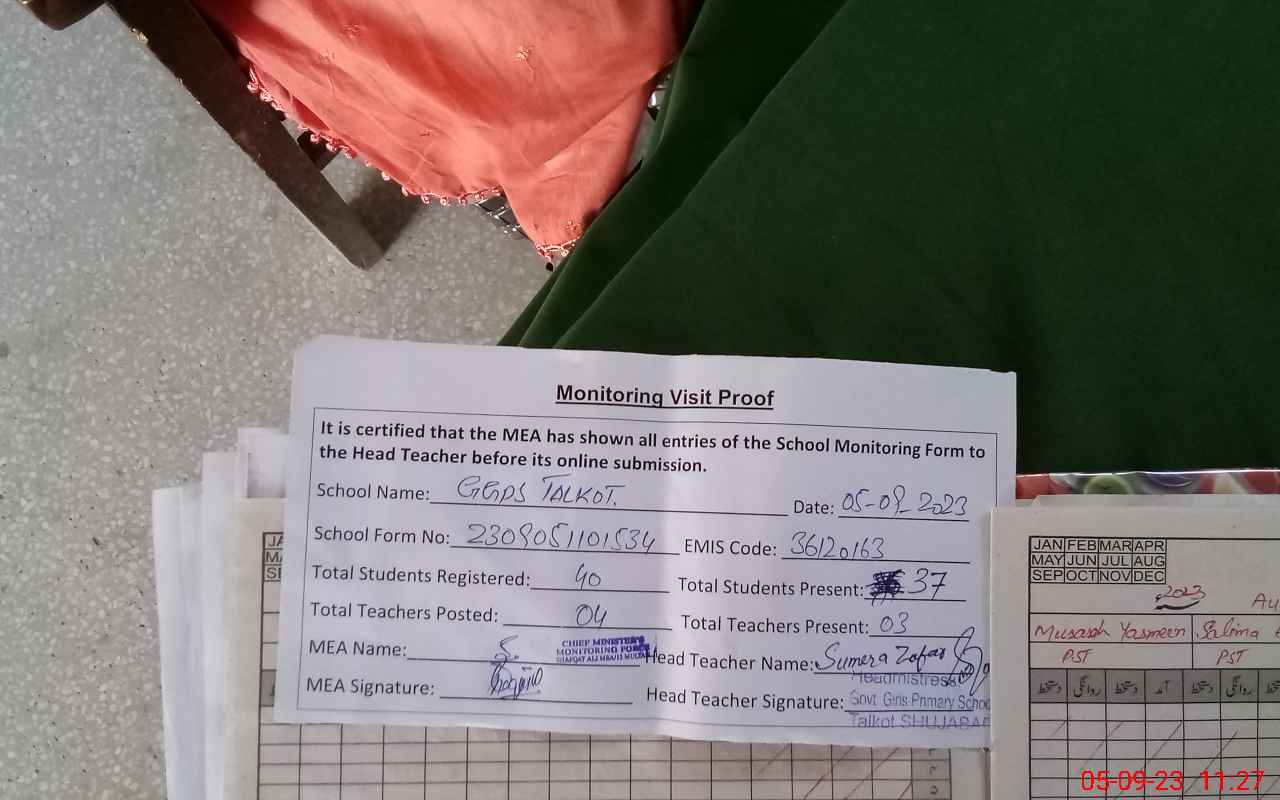 Monitoring Visit Proof
It is certified that the MEA has shown all entries of the School Monitoring Form to
the Head Teacher before its online submission.
School Name: GGPS TALKOT. Date: 05-09-2023
School Form No: 2309051101534 EMIS Code: 36120163
Total Students Registered: 40 Total Students Present: 37
Total Teachers Posted: 04 Total Teachers Present: 03
MEA Name: S. CHIEF MINISTER'S
MONITORING FORCE
SHAFQAT ALI MEA
Head Teacher Name: Sumera Zafar
MEA Signature:
Head Teacher Signature:
Headmistress
Govt Girls Primary School
Talkot SHUJABAD
JAN FEB MAR APR
MAY JUN JUL AUG
SEP OCT NOV DEC
2023 Au
Musarah Yasmeen Salima
PST PST
دستخط روانگی دستخط آمد دستخط روانگی دستخط
JA
MA
SE
05-09-23 11:27